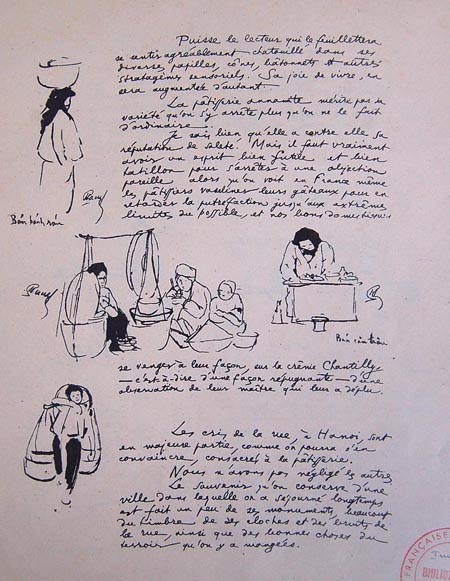 Puisse le lecteur qui le feuillettera
se sentir agréablement chatouillé dans ses
diverses papilles, cônes, bâtonnets et autres
stratagèmes sensoriels. Sa joie de vivre, en
sera augmentée d'autant.
La pâtisserie annamite mérite par sa
variété qu'on s'y arrête plus qu'on ne le fait
d'ordinaire.
Je sais bien qu'elle a contre elle sa
réputation de saleté. Mais il faut vraiment
avoir un esprit bien futile et bien
tatillon pour s'arrêter à une objection
pareille alors qu'on voit en France même
les pâtissiers vaseliner leurs gâteaux pour en
retarder la putréfaction jusqu'aux extrêmes
limites du possible, et nos bons domestiques
Bán
Bán
se venger à leur façon, sur la crème Chantilly
— c'est-à-dire d'une façon répugnante — d'une
observation de leur maître qui leur a déplu.
Les cris de la rue, à Hanoi, sont
en majeure partie, comme on pourra s'en
convaincre, consacrés à la pâtisserie.
Nous n'avons pas négligé les autres
Le souvenir qu'on conserve d'une
ville dans laquelle on a séjourné longtemps
est fait un peu de ses monuments, beaucoup
du timbre de ses cloches et des bruits de
la rue, ainsi que des bonnes choses du
terroir qu'on y a mangées.
FRANÇAISE